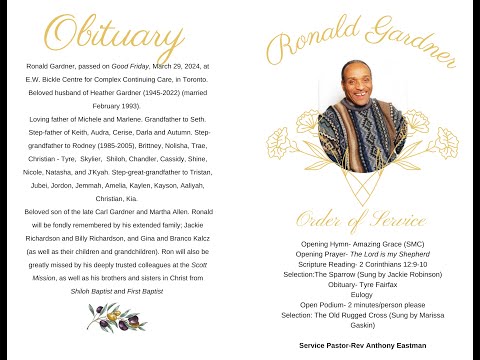 Obituary
Ronald Gardner, passed on Good Friday, March 29, 2024, at
E.W. Bickle Centre for Complex Continuing Care, in Toronto.
Beloved husband of Heather Gardner (1945-2022) (married
February 1993).
Loving father of Michele and Marlene. Grandfather to Seth.
Step-father of Keith, Audra, Cerise, Darla and Autumn. Step-
grandfather to Rodney (1985-2005), Brittney, Nolisha, Trae,
Christian - Tyre, Skylier, Shiloh, Chandler, Cassidy, Shine,
Nicole, Natasha, and J'Kyah. Step-great-grandfather to Tristan,
Jubei, Jordon, Jemmah, Amelia, Kaylen, Kayson, Aaliyah,
Christian, Kia.
Beloved son of the late Carl Gardner and Martha Allen. Ronald
will be fondly remembered by his extended family; Jackie
Richardson and Billy Richardson, and Gina and Branco Kalcz
(as well as their children and grandchildren). Ron will also be
greatly missed by his deeply trusted colleagues at the Scott
Mission, as well as his brothers and sisters in Christ from
Shiloh Baptist and First Baptist
Ronald Gardner
Order of Service
Opening Hymn- Amazing Grace (SMC)
Opening Prayer- The Lord is my Shepherd
Scripture Reading- 2 Corinthians 12:9-10
Selection:The Sparrow (Sung by Jackie Robinson)
Obituary- Tyre Fairfax
Eulogy
Open Podium- 2 minutes/person please
Selection: The Old Rugged Cross (Sung by Marissa
Gaskin)
Service Pastor-Rev Anthony Eastman